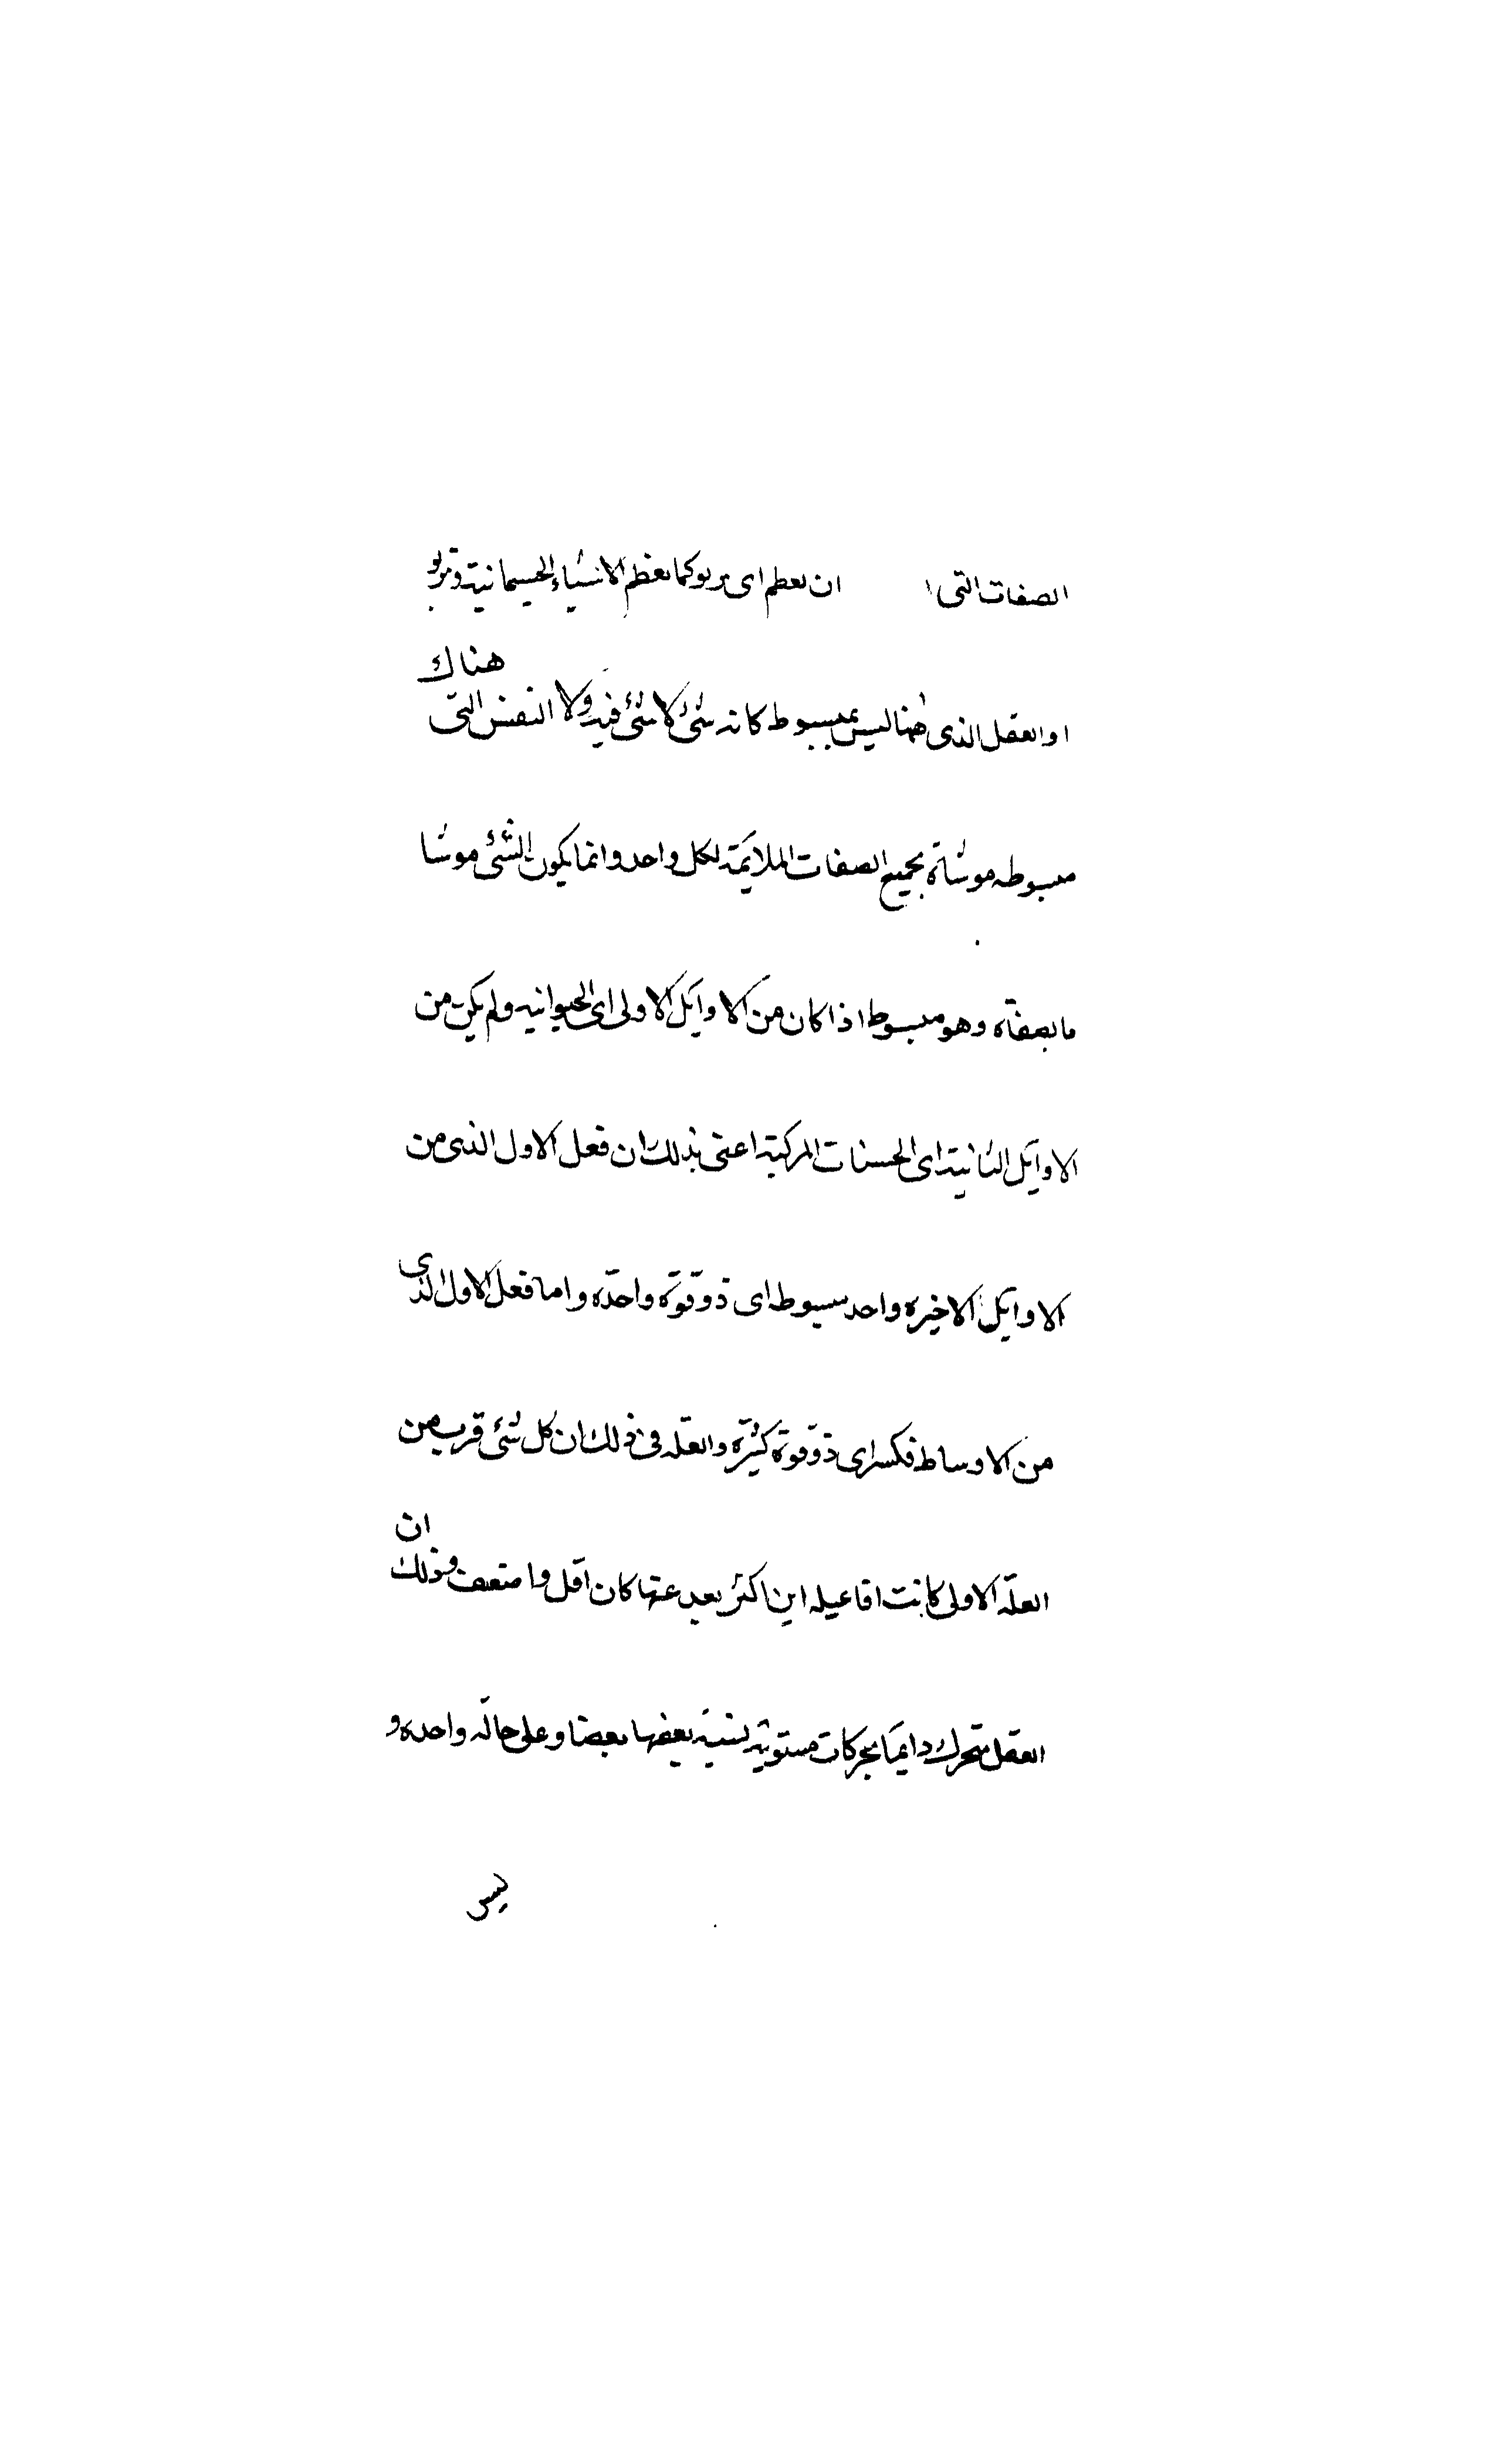 الصفات التى ا ان تعظم اى تربو كما تعظم الاشياء الجسمانية وتربو
او العقل الذى ههنا ليس بمبسوط كانه شئ لا شئ فيه ولا النفس التى هناك
مبسوطه موشاة بجميع الصفات الملايمة لكل واحد وانما يكون الشئ موشا
ما بصفاة وهو مبسوط اذا كان من الاوايل الاولى اى الحيوانيه ولم يكن من
الاوايل الثانية اى الحسنات المركبة اعنى بذلك ان فعل الاول الذى من
الاوايل الاخيره واحد مبسوط اى ذو قوة واحده واما فعل الاول الذى
من الاوساط فكسر اى ذو قوة كثيرة والعله فى ذلك ان كل شئ قرب من
العلة الاولى كانت افاعيله ابين اكثر بعد عنها كان اقل واضعف وذلك ان
العقل يتحرك دايما بحركات مستوية يشبه بعضها بعضا وعلى حالة واحده و
ليس